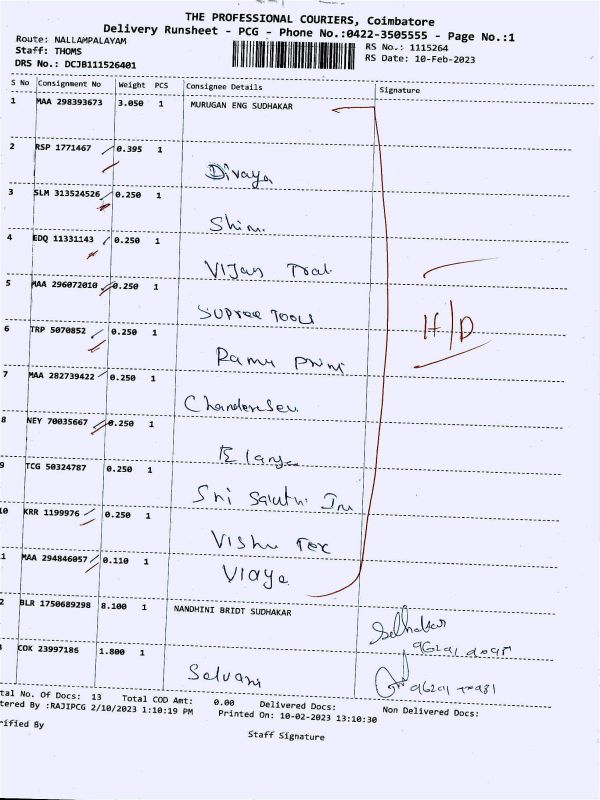 THE PROFESSIONAL COURIERS, Coimbatore
Delivery Runsheet - PCG - Phone No.:0422-3505555 - Page No.:1
Route: NALLAMPALAYAM
Staff: THOMS
DRS No.: DCJB111526401
RS No.: 1115264
RS Date: 10-Feb-2023
S No Consignment No Weight PCS Consignee Details Signature
1 MAA 298393673 3.050 1 MURUGAN ENG SUDHAKAR
2 RSP 1771467 0.395 1
Divaya
3 SLM 313524526 0.250 1
Shim
4 EDQ 11331143 0.250 1
Vijay Trad
5 MAA 296072010 0.250 1
Supree Tools
H/D
6 TRP 5070852 0.250 1
Ramu Print
7 MAA 282739422 0.250 1
8 NEY 70035667 0.250 1
9 TCG 50324787 0.250 1
Sri
10 KRR 1199976 0.250 1
Vishu Tex
1 MAA 294846057 0.110 1
Viaya
2 BLR 1750689298 8.100 1 NANDHINI BRIDT SUDHAKAR
Sudhakar
3 COK 23997186 1.800 1
Selvam
tal No. Of Docs: 13 Total COD Amt: 0.00 Delivered Docs: Non Delivered Docs:
tered By :RAJIPCG 2/10/2023 1:10:19 PM Printed On: 10-02-2023 13:10:30
rified By
Staff Signature